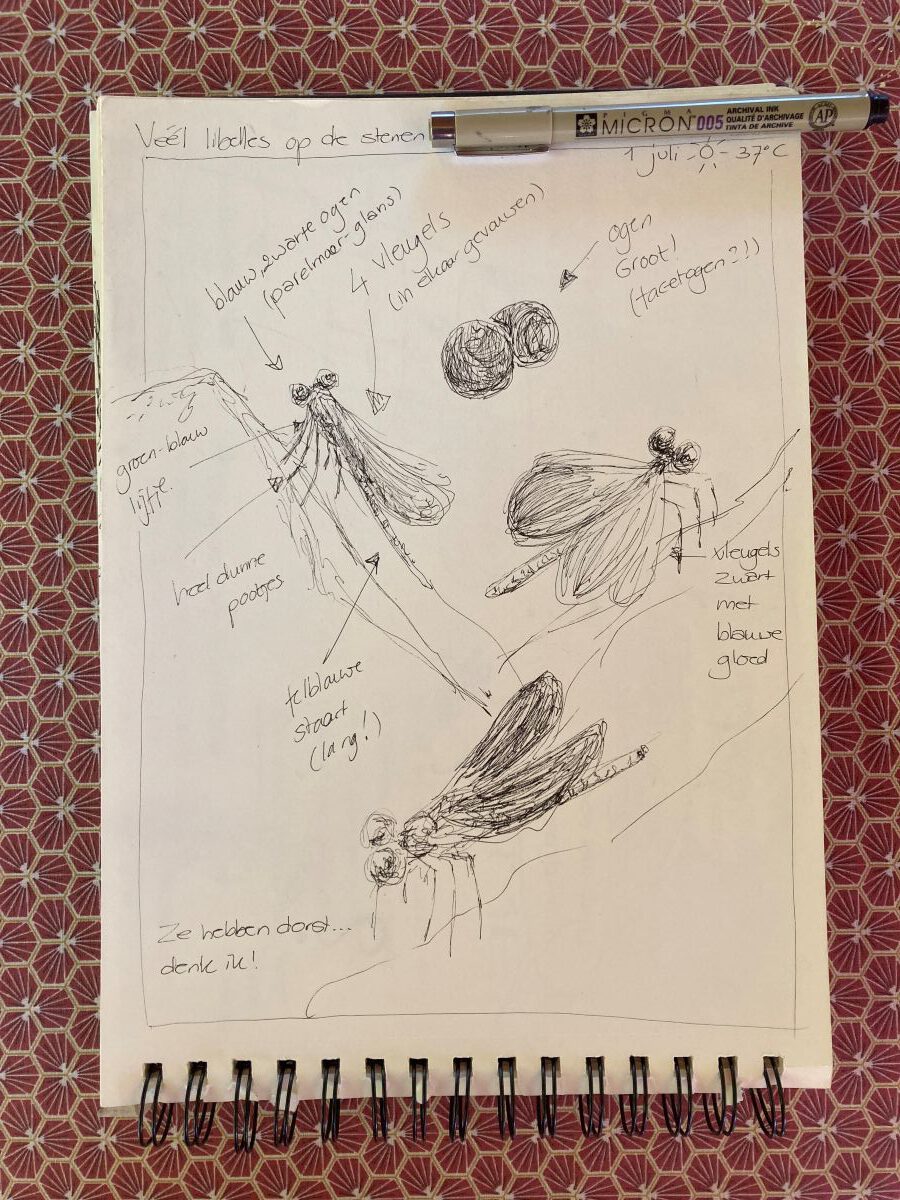 Véél libelles op de stenen
PIGMA
MICRON 005
ARCHIVAL INK
QUALITÉ D'ARCHIVAGE
TINTA DE ARCHIVE
AP
1 juli 37°C
blauw, zwarte ogen
(parelmoer-glans)
4 vleugels
(in elkaar gevouwen)
ogen
Groot!
(facetogen?!)
groen-blauw
lijfje.
heel dunne
pootjes
felblauwe
staart
(lang!)
vleugels
zwart
met
blauwe
gloed
Ze hebben dorst...
denk ik!